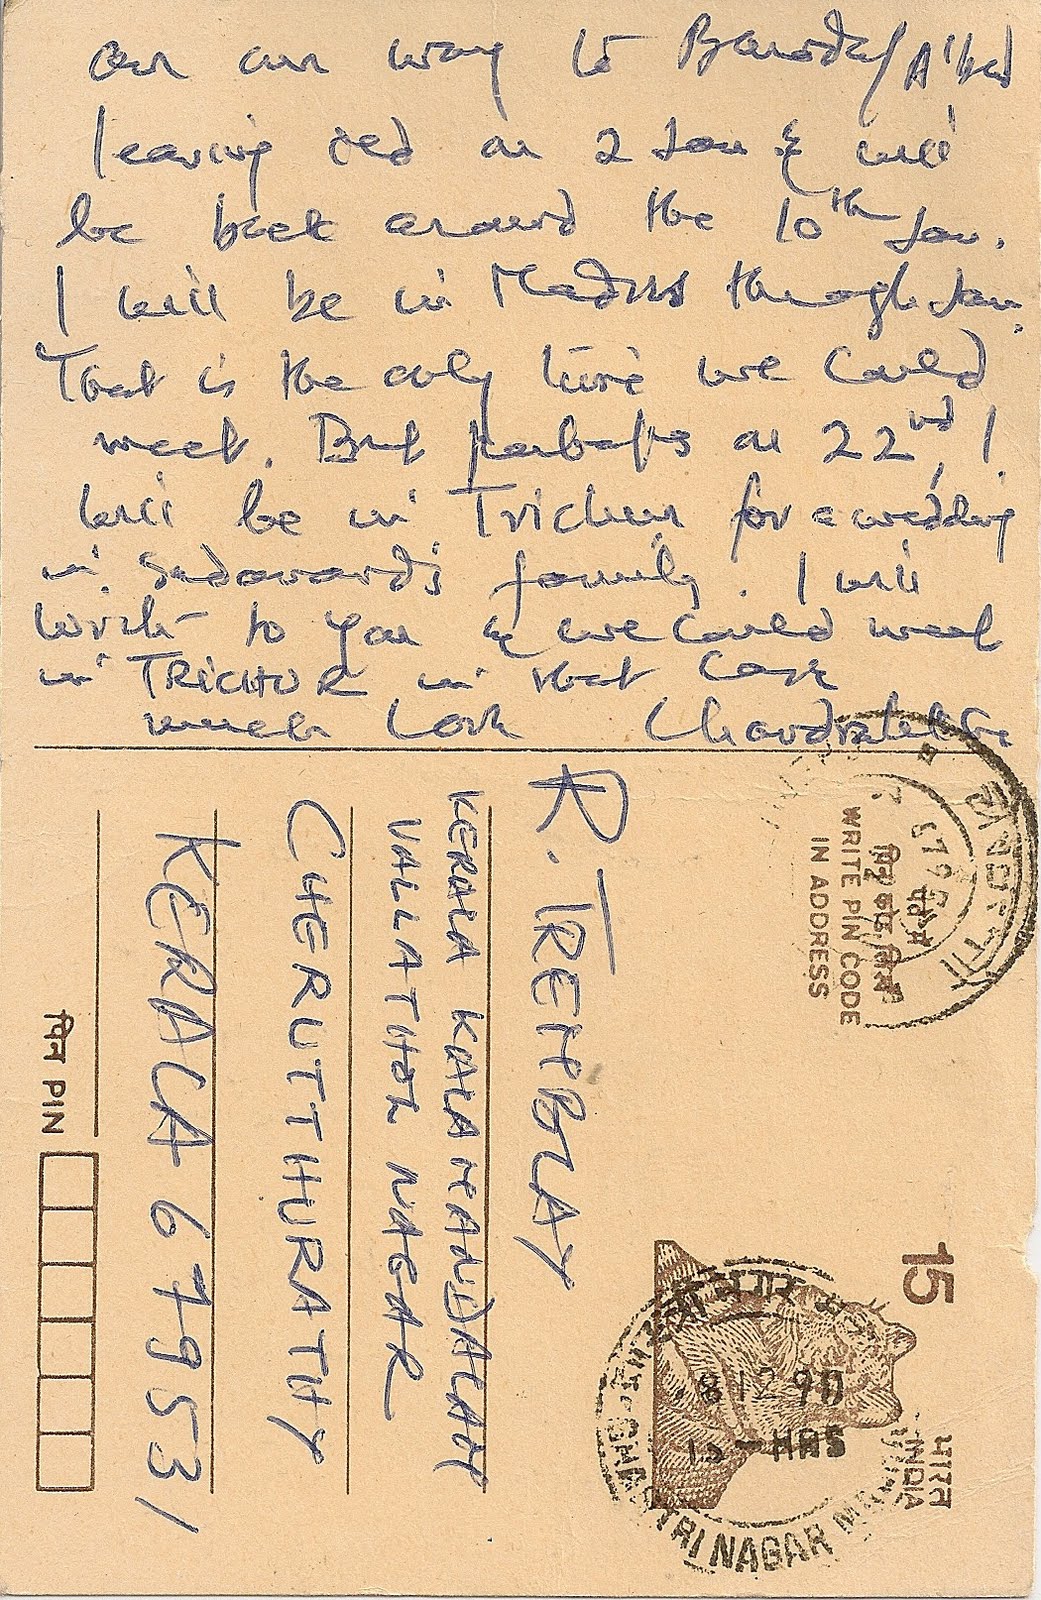 on our way to Baroda/A'bad
leaving on 2 Jan & will
be back around the 10th Jan.
I will be in Madras through Jan.
That is the only time we could
meet. But perhaps on 22nd, I
will be in Trichur for a wedding
in Sadanand's family. I will
write to you & we could meet
in TRICHUR in that case
much love Chandralekha
R. TREMBLAY
KERALA KALAMANDALAM
VALLATHOL NAGAR
CHERUTTHURATHY
KERALA 679531
पिन PIN
पिन कोड
WRITE PIN CODE
IN ADDRESS
15
भारत
INDIA
8 12 90
HRS
SHASTRI NAGAR